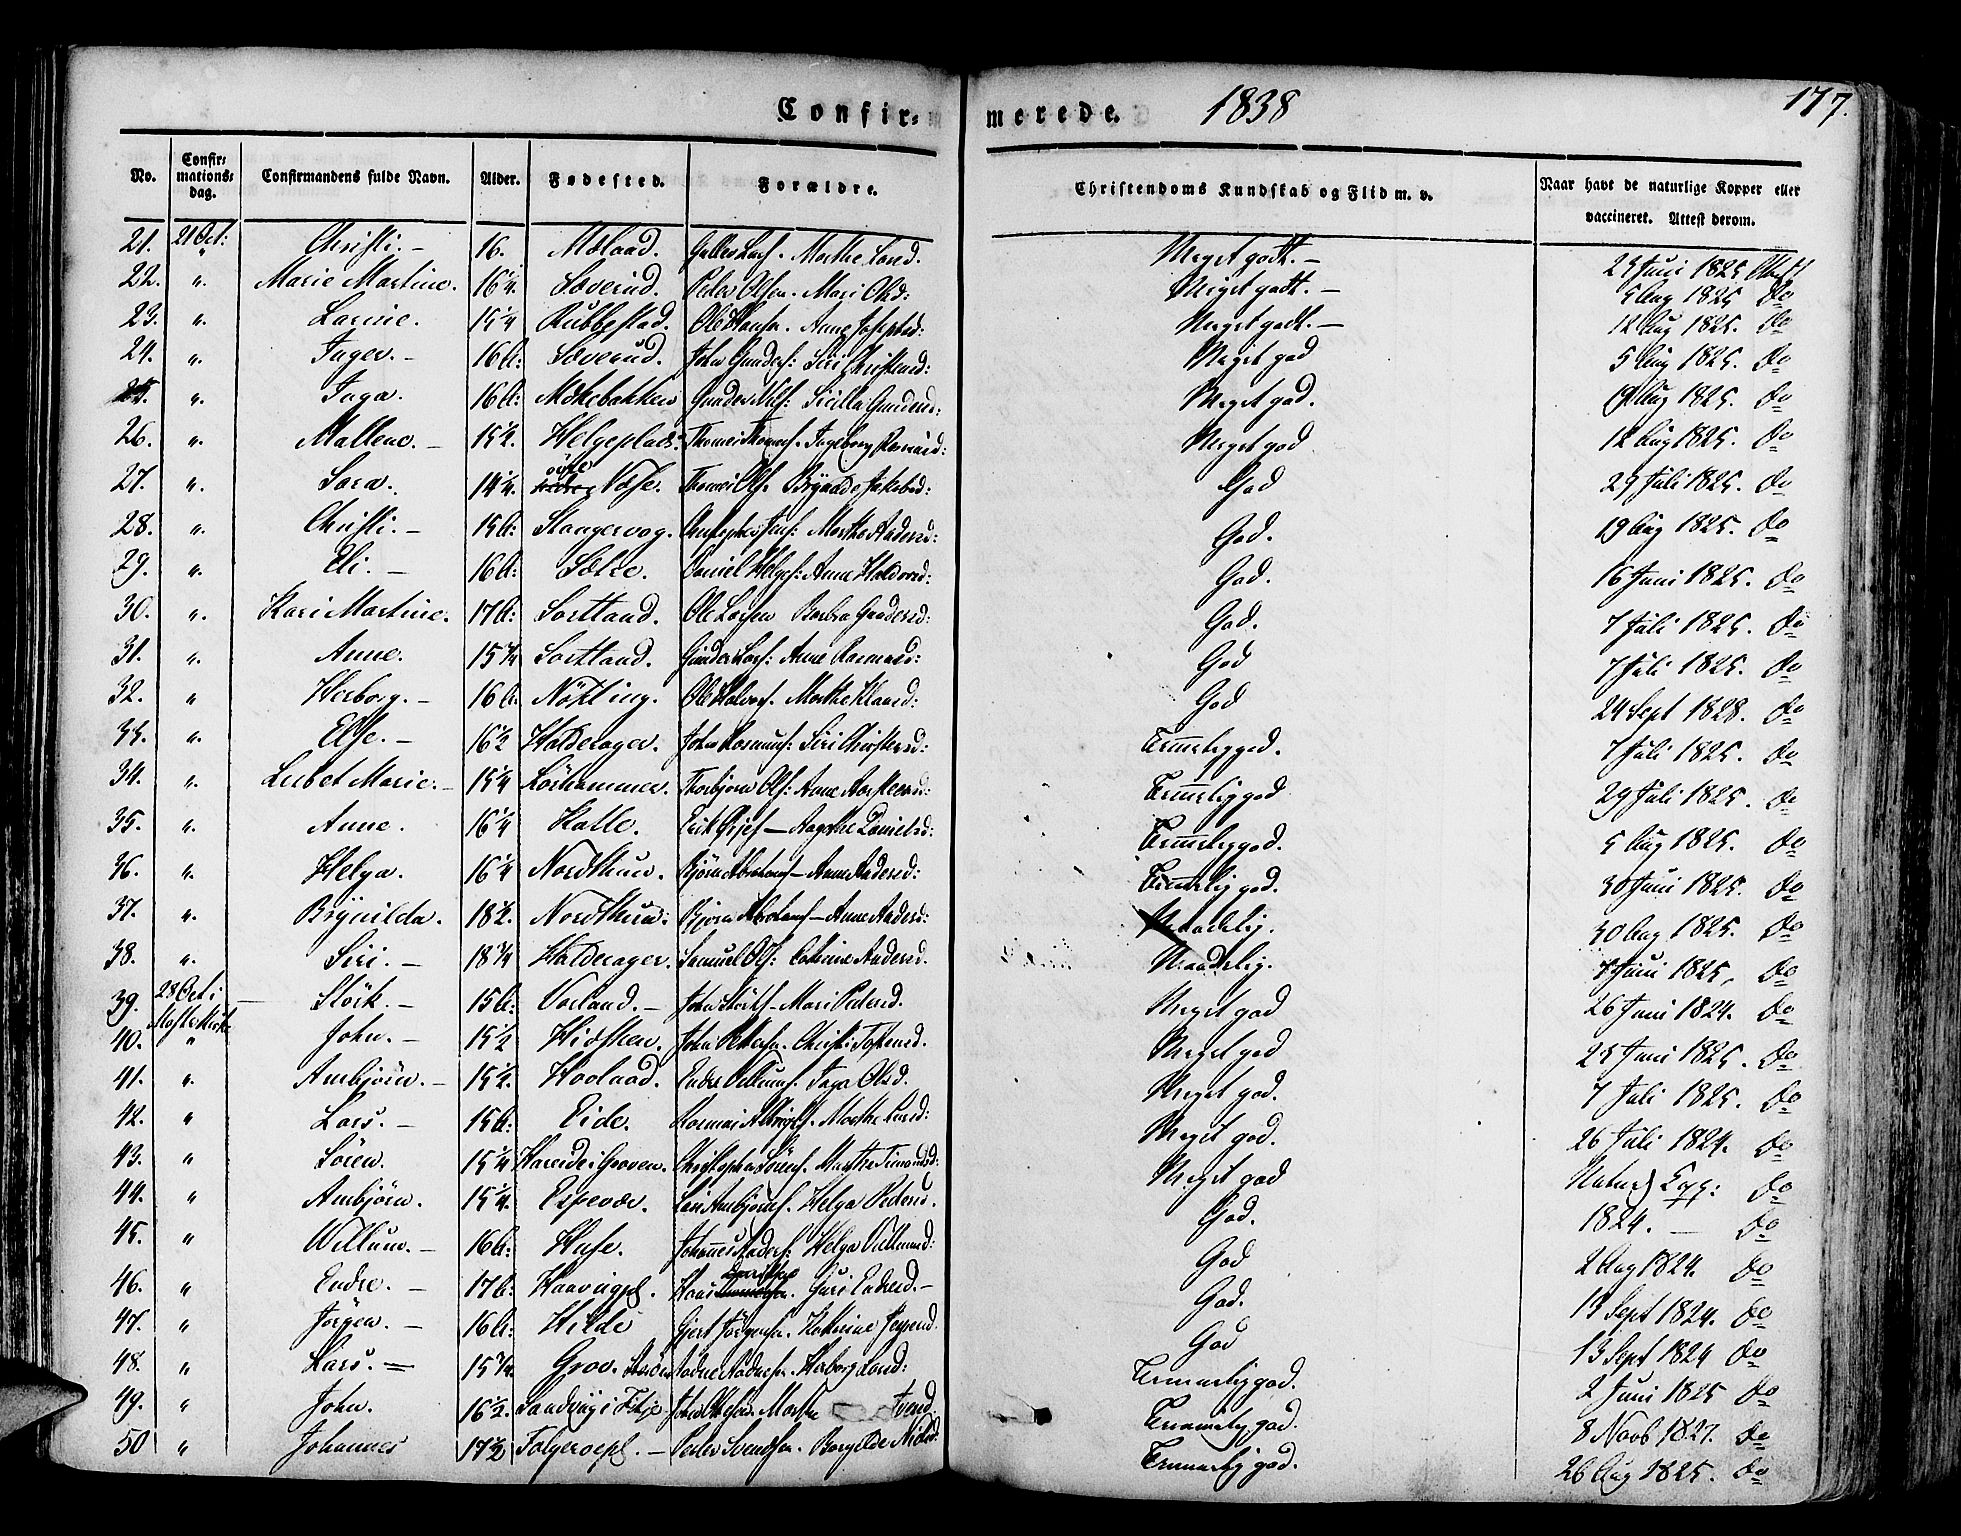 Confir- merede. 1838 177.
No. Confirmationsdag. Confirmandens fulde Navn. Alder. Fødested. Forældre. Christendoms Kundskab og Flid m. v. Naar havt de naturlige Kopper eller vaccineret. Attest derom.
21. 21 Oct: Christi. – 16. Mælaad. Marthe Larsd. Meget godt. – 1825
22. " Marie Martine. 16 1/4. Sæverud. Peder Olsen. Mari Olsd: Meget godt. – 5 Aug 1825 do
23. " Larine. 15 1/4 Rubbestad. Ole Hansen. Anne Josephsd: Meget godt. – 12 Aug 1825. do
24. " Inger. – 16 A: Sæverud. John Gunders: Siri Christensd: Meget god 5 Aug 1825. do
25. " Inga. 16 A: Mækebakken Gunder Nils: Sicilla Gundersd: Meget god. 19 Aug 1825. do
26. " Mallene. – 15 1/2. Helgeplads. Ingeborg Rasmusd: Meget god 12 Aug 1825. do
27. " Sara. 14 1/4. øvre Vasse. Thomas Ols. Jakobsd: God 29 Juli 1825. do
28. " Christi. – 15 A: Stangervog. Marthe Andersd: God. 19 Aug 1825. do
29. " Eli. – 16 A: Sætre. Daniel Helges: Anne Haldorsd: God. 16 Juni 1825. do
30. " Kari Martine. 17 A: Sortland. Ole Larsen Barbra Gundersd: God. 7 Juli 1825. do
31. " Anne. 15 3/4 Sortland. Gunder Lars: Anne Rasmusd: God 7 Juli 1825. do
32. " Herborg. – 16 A: Nøkling. Ole Halvors. Marthe Klausd: God 24 Sept 1828. do
33. " Else. – 16 1/2 Halderager. John Rasmus: Siri Christensd: Temmelig god. 7 Juli 1825. do
34. " Lisbet Marie. – 15 1/4 Løkhammer. Thorbjørn Ols: Anne Temmelig god 29 Juli 1825. do
35. " Anne. 16 1/4 Kalle. Erik – Aagathe Danielsd: Temmelig god. 5 Aug 1825. do
36. " Helga. 16 1/4 Nordthun. Bjørn Abrahams – Anne Andersd: Temmelig god. 30 Juni 1825. do
37. " Brynilda. 18 1/2. Nordthun: Bjørn Abrahams – Anne Andersd: Maadelig. 30 Aug 1825. do
38. " Siri. – 18 3/4 Halderager. Samuel Ols: Cathrine Andersd. Maadelig. 7 Juni 1825. do
39. 28 Oct i Størk. – 15 A: Vorland. – John Størks – Mari Pedersd. Meget god 26 Juni 1824. do
Moster Kirke
40. " John. – 15 1/2 Hidsken. John Pettersen. Christi Meget god 1825. do
41. " Ambjørn. – 15 1/2. Hovlaad. Endre Villums: Inga Olsd. Meget god. 7 Juli 1825. do
42. " Lars. – 15 A: Eide. Marthe Larsd: Meget god. 26 Juli 1824. do
43. " Søren. 15 1/4 Hareide i Grøven. Christopher Sørens. Marthe Simonsd: Meget god Naturl do
44. " Ambjørn. 15 1/4. Espevær. Lars Ambjørns. Helga Pedersd. God. 1824. – do
45. " Willum. – 16 A: Huse. Johannes Anders: Helga Villumsd: God 2 Aug 1824. do
46. " Endre. – 17 A: Haavigpl. Hans Guri Endresd. – God. 13 Sept 1824. do
47. " Jørgen. – 16 A: Hilde Gjert Jørgensen. Katherine God 13 Sept 1824 do
48. " Lars. – 15 3/4. Grov. Aadne Aadnesen. Herborg Larsd: Temmelig god. 2 Juni 1825 do
49. " John. 16 1/2. Sandvig i Fitje. John Olsen. Marthe Temmelig god. 8 Novb 1827. do
50 " Johannes 17 1/2 Folgerøepl. – Peder Svendsen. Borgilde Nielsd: Temmelig god. 26 Aug 1825. do